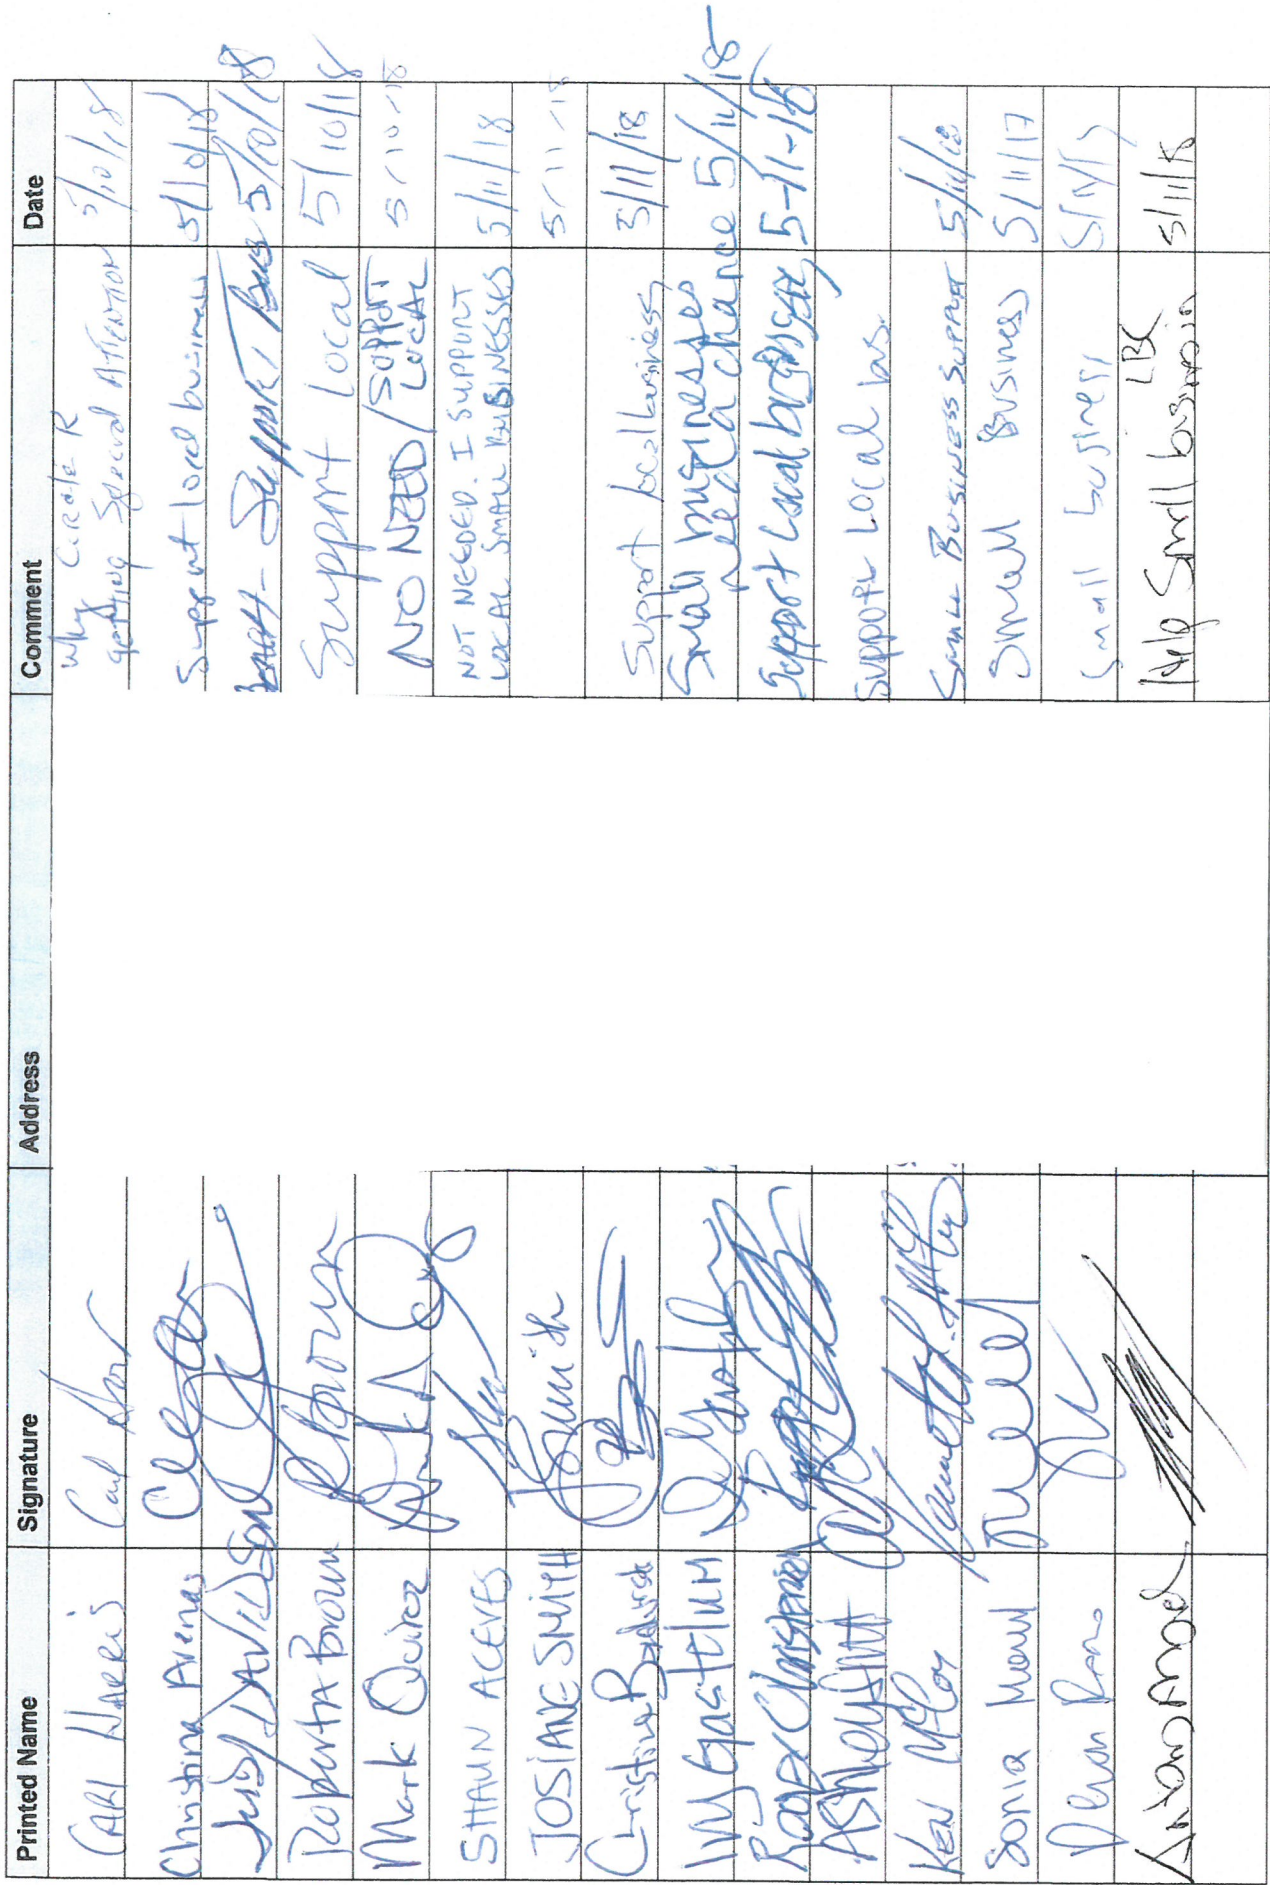 Printed Name Signature Address Comment Date
CARl HARRiS Why CiRcle R getting Special Attention 5/10/18
Christina Arenas Support local business 5/10/18
Judy DAVIDSON Support Bus 5/10/18
Roberta Brown RBrown Support Local 5/10/18
Mark Quiroz NO NEED / SUPPORT LOCAL 5-10-18
SHAUN ACEVES NOT NEEDED. I SUPPORT LOCAL SMALL BUSINESSES 5/11/18
JOSIANE SMITH JSmith 5-11-18
Christine Support local business 5/11/18
Ivy Gastelum Small businesses need a chance 5/11/18
Roger Christensen Support Local business 5-11-18
Ashley Support Local bus.
Ken McCoy Small Business Support 5/11/18
Sonia Small Business 5/11/17
Small business
Help Small business LBC 5/11/18